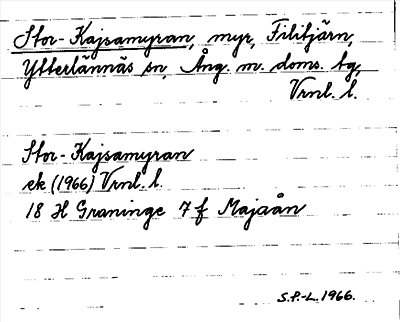 Stor-Kajsamyran, myr, Filitjärn,
Ytterlännäs sn, Ång. m. doms. tg,
Vrnl. l.
Stor-Kajsamyran
ek (1966) Vrnl. l.
18 H Graninge 7 f Majaån
S.P.-L. 1966.